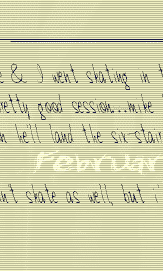 & I went skating in
pretty good session...mike
he'll land the six-stair
Februar
n't skate as well, but i'